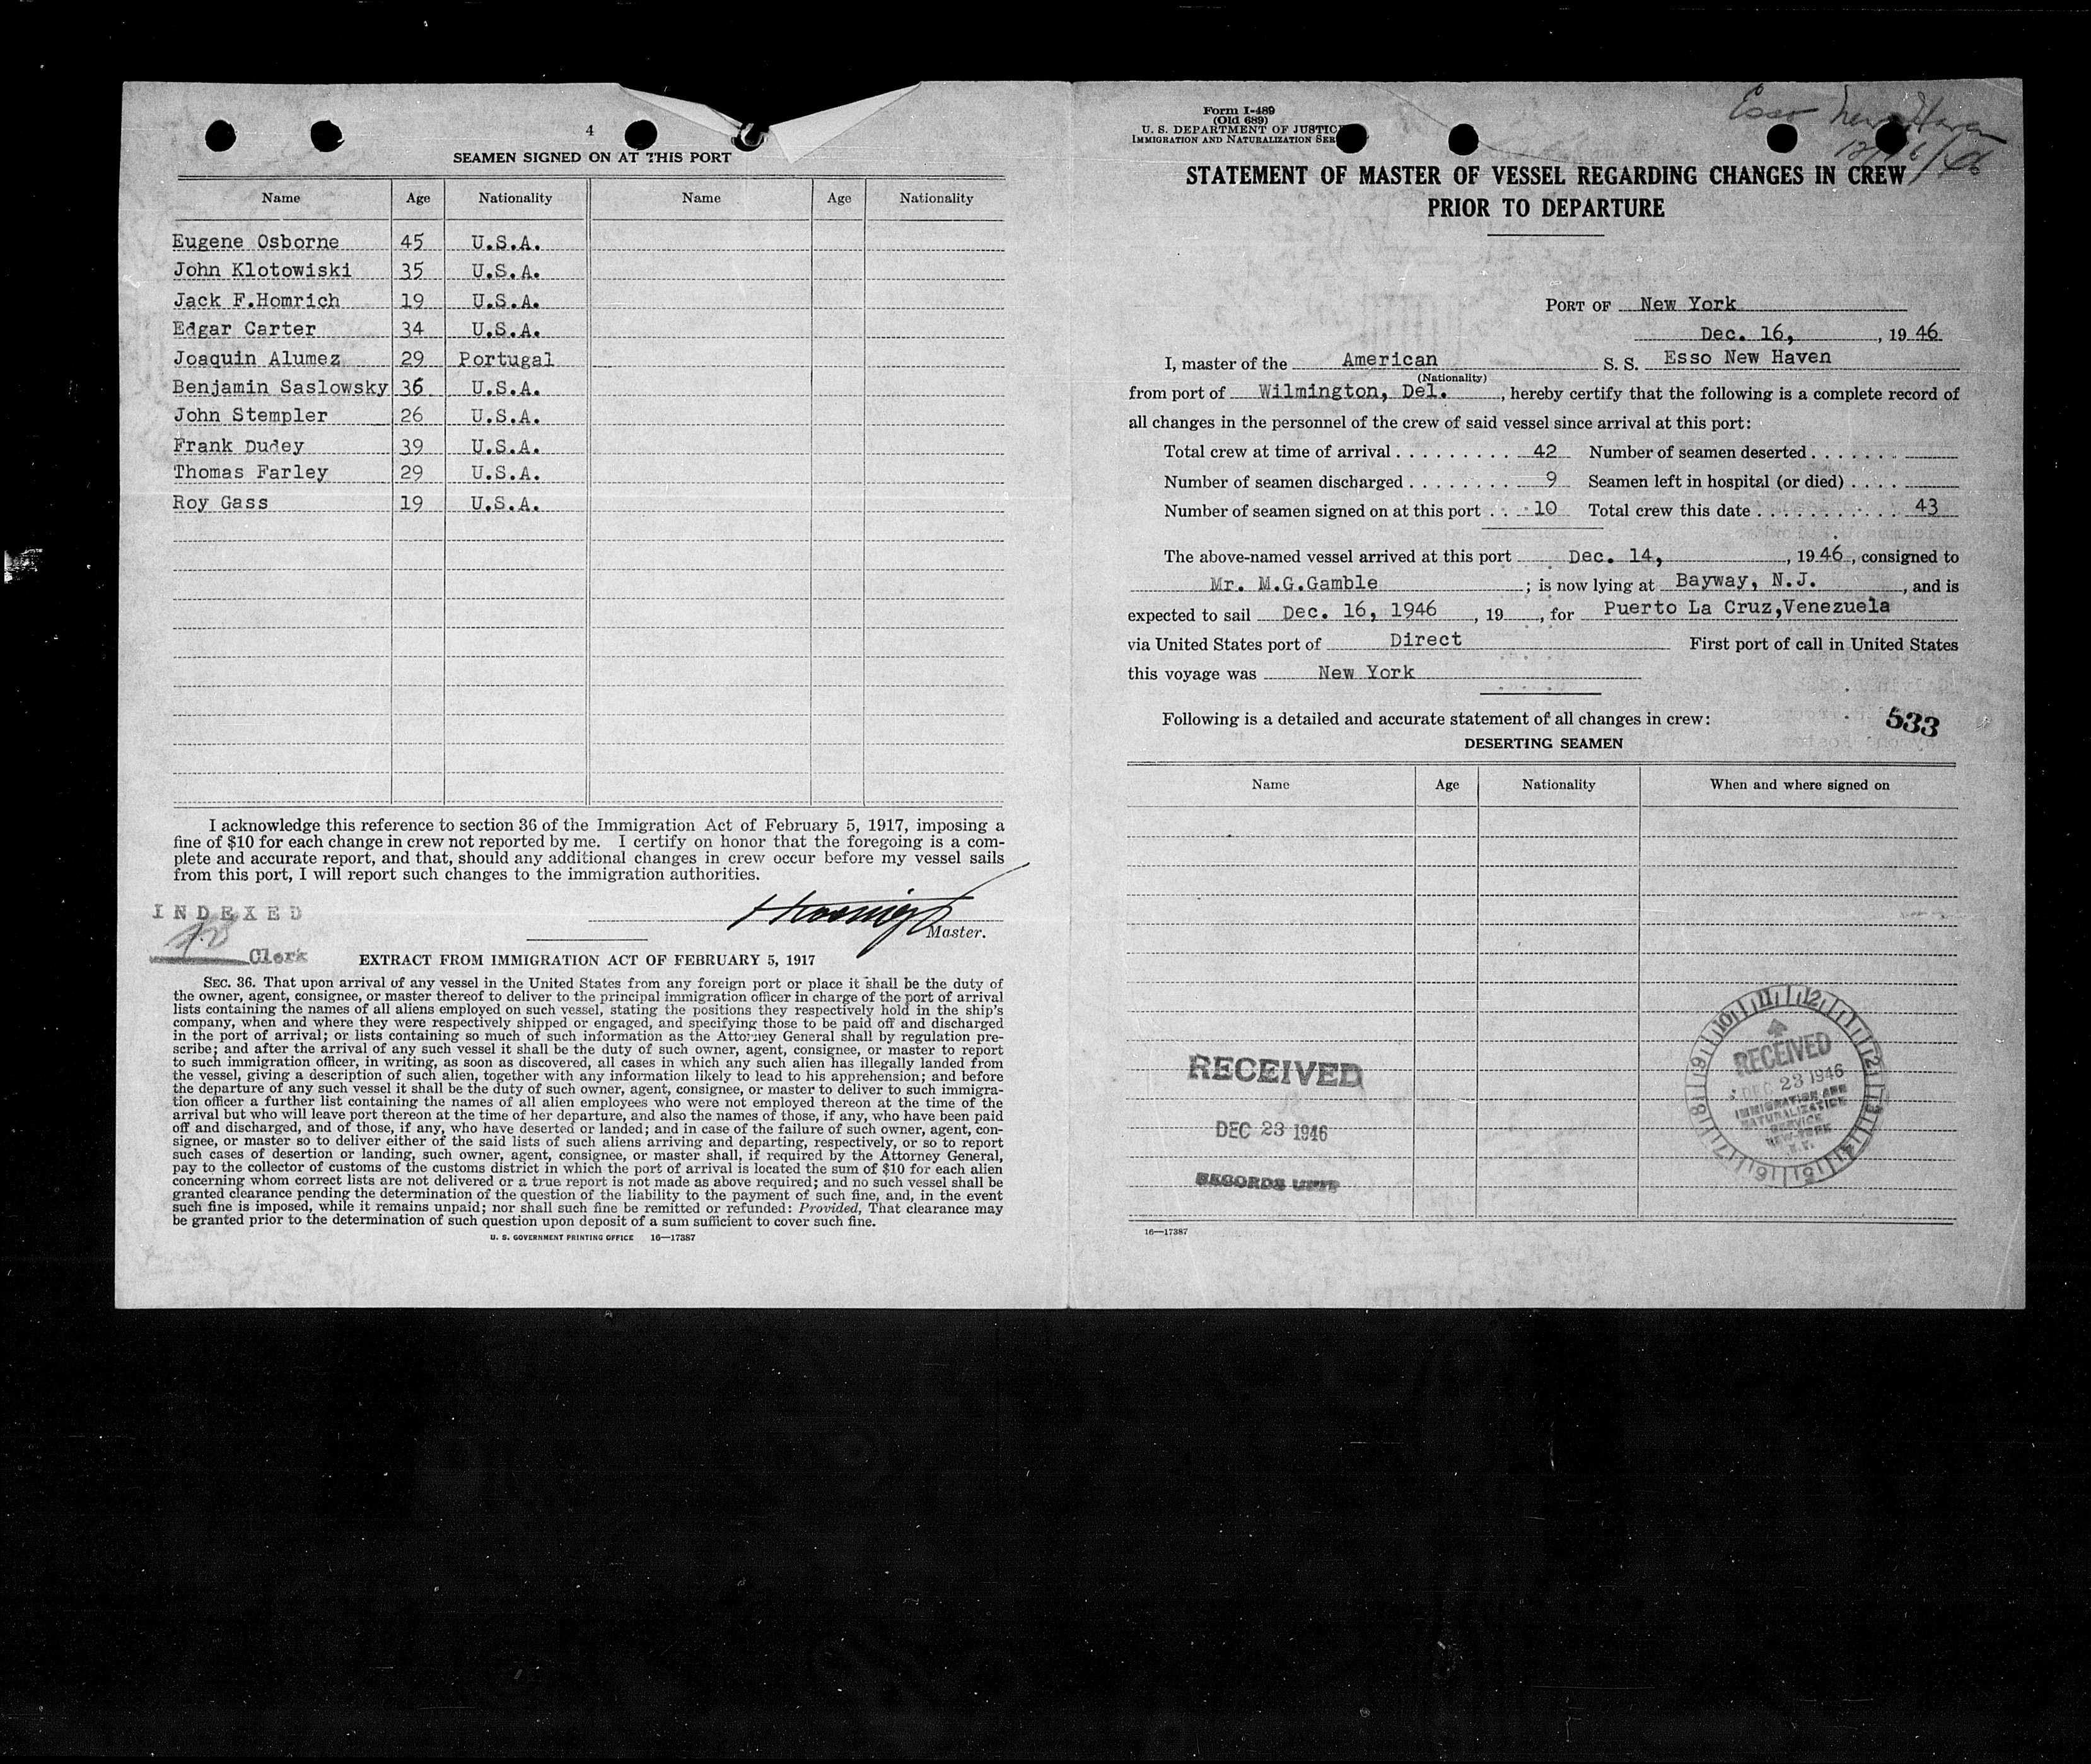 4
SEAMEN SIGNED ON AT THIS PORT
Name Age Nationality Name Age Nationality
Eugene Osborne 45 U.S.A.
John Klotowiski 35 U.S.A.
Jack F.Homrich 19 U.S.A.
Edgar Carter 34 U.S.A.
Joaquin Alumez 29 Portugal
Benjamin Saslowsky 36 U.S.A.
John Stempler 26 U.S.A.
Frank Dudey 39 U.S.A.
Thomas Farley 29 U.S.A.
Roy Gass 19 U.S.A.
I acknowledge this reference to section 36 of the Immigration Act of February 5, 1917, imposing a
fine of $10 for each change in crew not reported by me. I certify on honor that the foregoing is a com-
plete and accurate report, and that, should any additional changes in crew occur before my vessel sails
from this port, I will report such changes to the immigration authorities.
INDEXED
Master.
Clerk
EXTRACT FROM IMMIGRATION ACT OF FEBRUARY 5, 1917
SEC. 36. That upon arrival of any vessel in the United States from any foreign port or place it shall be the duty of
the owner, agent, consignee, or master thereof to deliver to the principal immigration officer in charge of the port of arrival
lists containing the names of all aliens employed on such vessel, stating the positions they respectively hold in the ship's
company, when and where they were respectively shipped or engaged, and specifying those to be paid off and discharged
in the port of arrival; or lists containing so much of such information as the Attorney General shall by regulation pre-
scribe; and after the arrival of any such vessel it shall be the duty of such owner, agent, consignee, or master to report
to such immigration officer, in writing, as soon as discovered, all cases in which any such alien has illegally landed from
the vessel, giving a description of such alien, together with any information likely to lead to his apprehension; and before
the departure of any such vessel it shall be the duty of such owner, agent, consignee, or master to deliver to such immigra-
tion officer a further list containing the names of all alien employees who were not employed thereon at the time of the
arrival but who will leave port thereon at the time of her departure, and also the names of those, if any, who have been paid
off and discharged, and of those, if any, who have deserted or landed; and in case of the failure of such owner, agent, con-
signee, or master so to deliver either of the said lists of such aliens arriving and departing, respectively, or so to report
such cases of desertion or landing, such owner, agent, consignee, or master shall, if required by the Attorney General,
pay to the collector of customs of the customs district in which the port of arrival is located the sum of $10 for each alien
concerning whom correct lists are not delivered or a true report is not made as above required; and no such vessel shall be
granted clearance pending the determination of the question of the liability to the payment of such fine, and, in the event
such fine is imposed, while it remains unpaid; nor shall such fine be remitted or refunded: Provided, That clearance may
be granted prior to the determination of such question upon deposit of a sum sufficient to cover such fine.
U. S. GOVERNMENT PRINTING OFFICE 16—17387
Esso New Haven
12/16/46
Form I-489
(Old 689)
U. S. DEPARTMENT OF JUSTIC
IMMIGRATION AND NATURALIZATION SER
STATEMENT OF MASTER OF VESSEL REGARDING CHANGES IN CREW
PRIOR TO DEPARTURE
PORT OF New York
Dec. 16, , 1946
I, master of the American S. S. Esso New Haven
(Nationality)
from port of Wilmington, Del. , hereby certify that the following is a complete record of
all changes in the personnel of the crew of said vessel since arrival at this port:
Total crew at time of arrival . . . . . . . . . 42 Number of seamen deserted . . . . . . .
Number of seamen discharged . . . . . . . . 9 Seamen left in hospital (or died) . . . .
Number of seamen signed on at this port . . . 10 Total crew this date . . . . . . . . . . . 43
The above-named vessel arrived at this port Dec. 14, , 1946, consigned to
Mr. M.G.Gamble ; is now lying at Bayway, N.J. , and is
expected to sail Dec. 16, 1946 , 19 , for Puerto La Cruz,Venezuela
via United States port of Direct First port of call in United States
this voyage was New York
Following is a detailed and accurate statement of all changes in crew:
533
DESERTING SEAMEN
Name Age Nationality When and where signed on
RECEIVED
DEC 23 1946
RECORDS UNIT
RECEIVED
DEC 23 1946
IMMIGRATION AND
NATURALIZATION
SERVICE
NEW YORK
N.Y.
16—17387